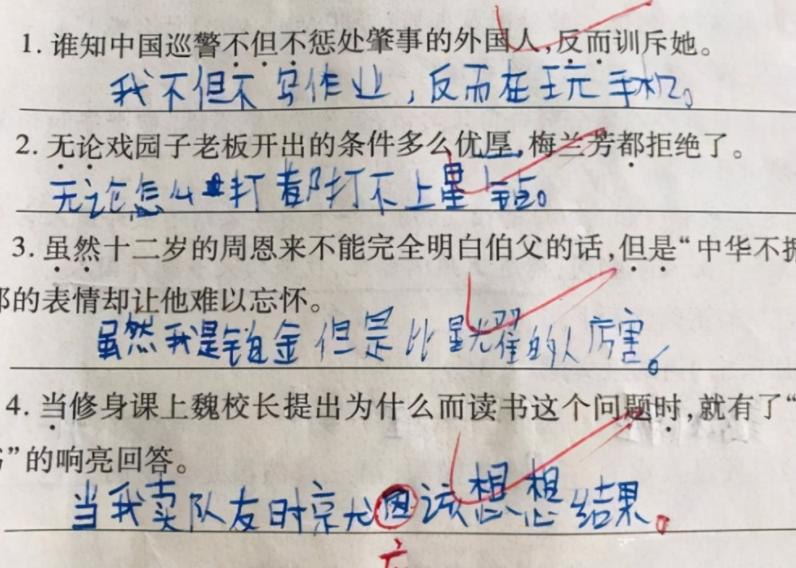 1. 谁知中国巡警不但不惩处肇事的外国人,反而训斥她。
我不但不写作业,反而在玩手机。
2. 无论戏园子老板开出的条件多么优厚,梅兰芳都拒绝了。
无论怎么打都打不上星钻。
3. 虽然十二岁的周恩来不能完全明白伯父的话,但是“中华不振
的表情却让他难以忘怀。
虽然我是铂金但是比星光耀的人厉害。
4. 当修身课上魏校长提出为什么而读书这个问题时,就有了“
”的响亮回答。
当我卖队友时就该想想结果。
应